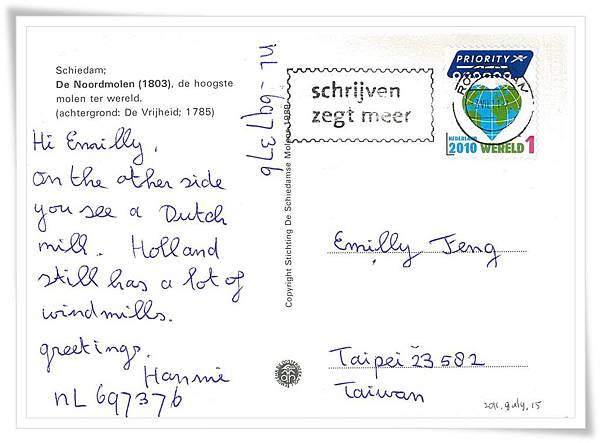 Schiedam;
De Noordmolen (1803), de hoogste
molen ter wereld.
(achtergrond: De Vrijheid; 1785)
Hi Emilly,
On the other side
you see a Dutch
mill. Holland
still has a lot of
windmills.
greetings.
Hannie
NL 697376
NL-697376
Copyright Stichting De Schiedamse Molens 1988
schrijven
zegt meer
PRIORITY
NEDERLAND
2010 WERELD 1
Emilly Feng
Taipei 23582
Taiwan
2011. July. 15